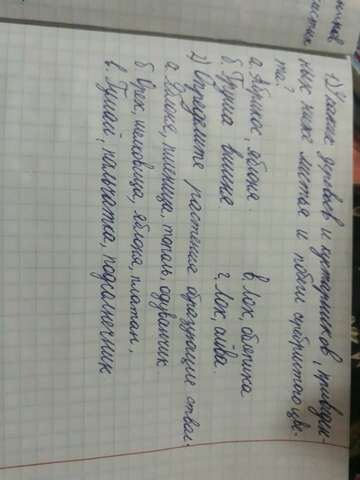 1) У каких деревьев и кустарников, приведен-
ных ниже листья и побеги серебристого цве-
та?
а. Абрикос, яблоня. в. Лох, облепиха
б. Груша вишня г. Лох, слива.
2) Определите растения образующие ствол.
а. Яблоня, пшеница, тополь, одуванчик.
б. Орех, шелковица, яблоня, платан,
в. Тугай, пальчатка, подсолнечник